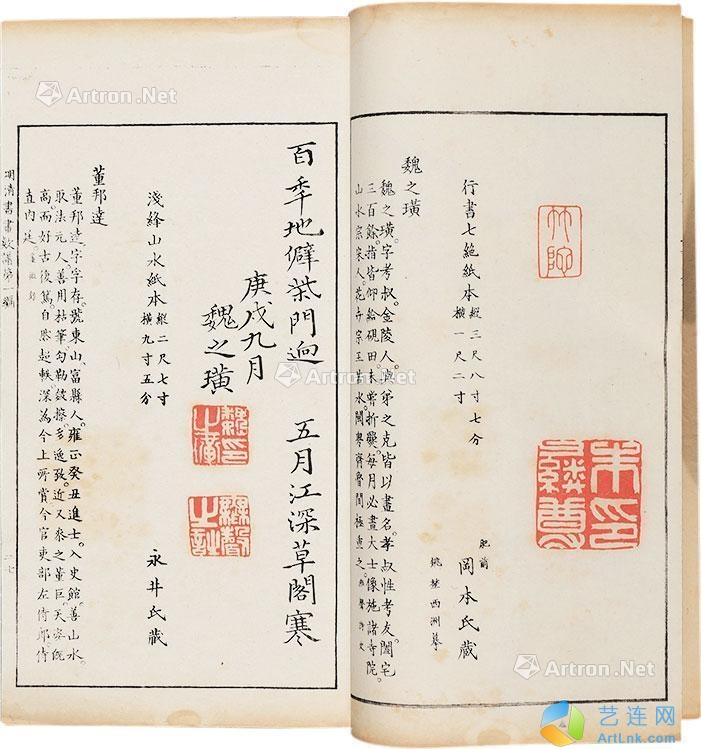 行書七絶紙本
縱三尺八寸七分
橫一尺二寸
肥前
岡本氏蔵
魏之璜
魏之璜。字考叔。金陵人。與弟之克皆以畫名。孝叔性考友。闔宅
三百餘。指皆仰給硯田。未嘗折 每月必畫大士像施諸寺院。
山水宗宋人。花
百秊地僻柴門迥 五月江深草閣寒
庚戌九月
魏之璜
淺絳山水紙本
縱二尺七寸
橫九寸五分
永井氏蔵
董邦達
董邦達。字孚存。號東山。富縣人。雍正癸丑進士。入史館善山水。
取法元人善用枯筆。勾勒皴擦。多逸致。近又參之董巨。天
高。而好古復篤。自然超軼。深為今上所賞今官吏部左侍郎。侍
直内廷。
明清書畫 第一編
二七
Artron.Net
Artron.Net
Artron.Net
Artron.Net
Artron.Net
艺连网
ArtLnk.Com